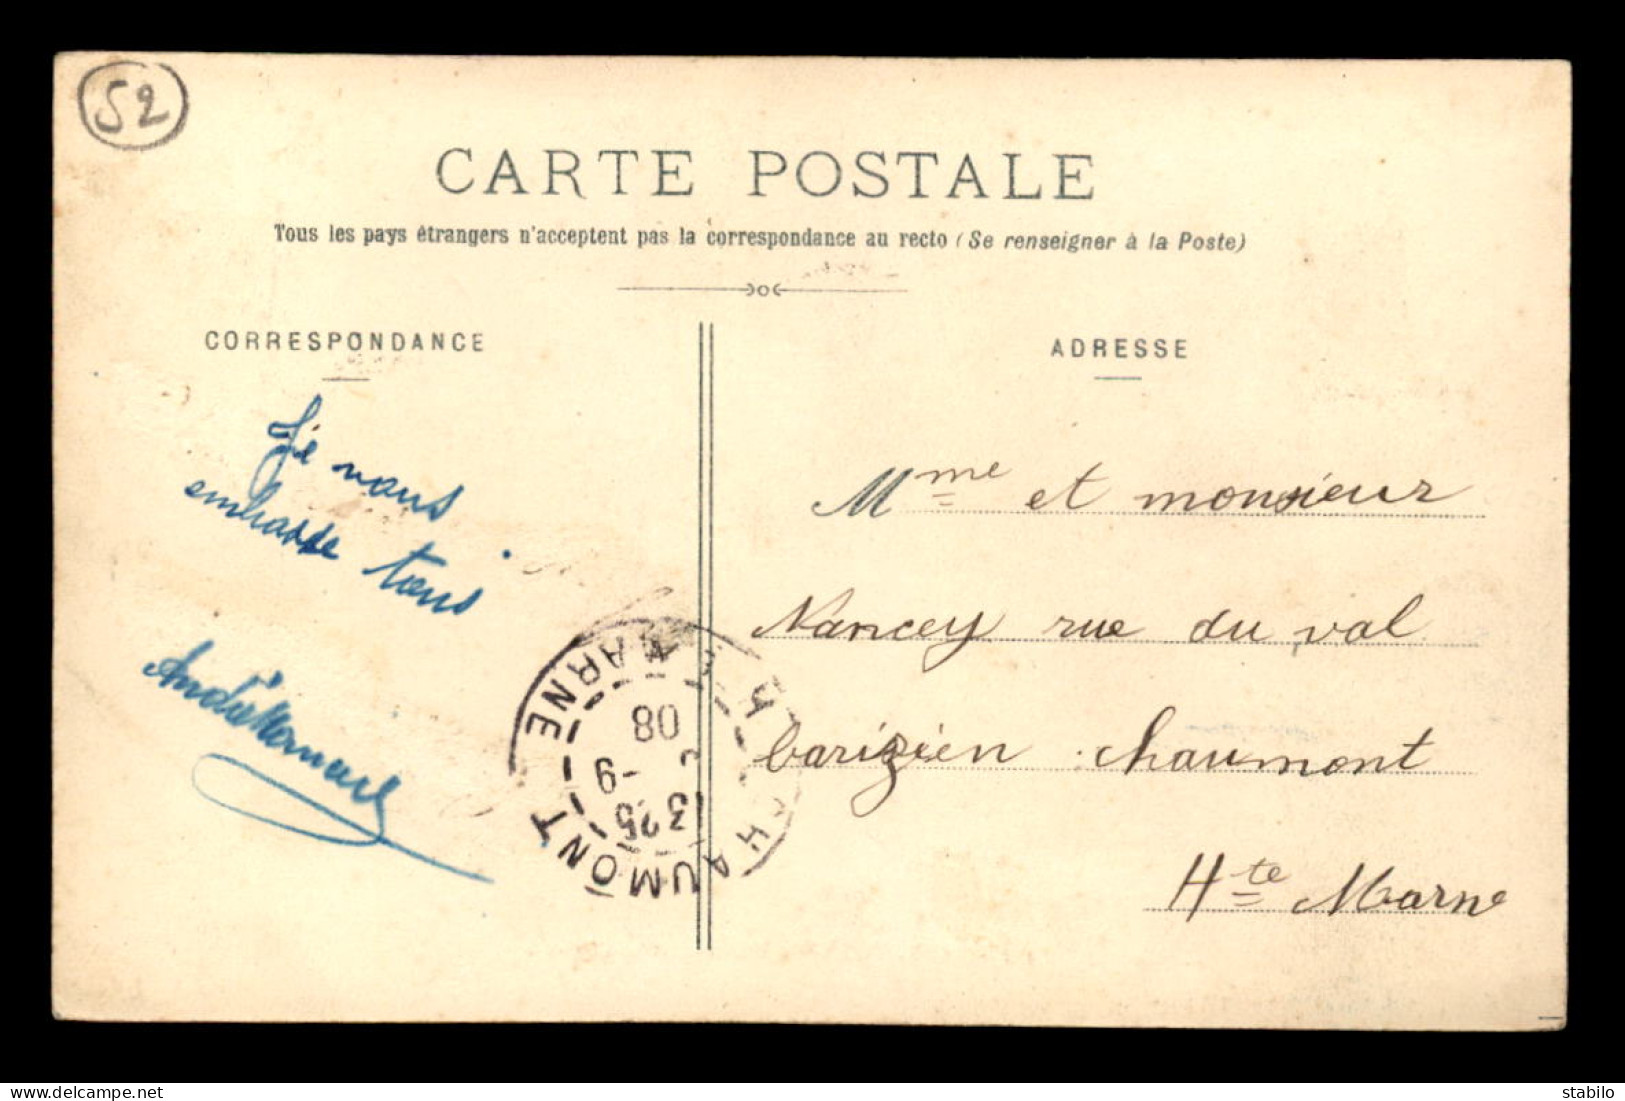 52
CARTE POSTALE
Tous les pays étrangers n'acceptent pas la correspondance au recto (Se renseigner à la Poste)
CORRESPONDANCE
Je vous
embrasse tous
André
ADRESSE
Mme et monsieur
Nancey rue du val
barizien Chaumont
Hte Marne
CHAUMONT
MARNE
1325
9-
08
delcampe.net
stabilo